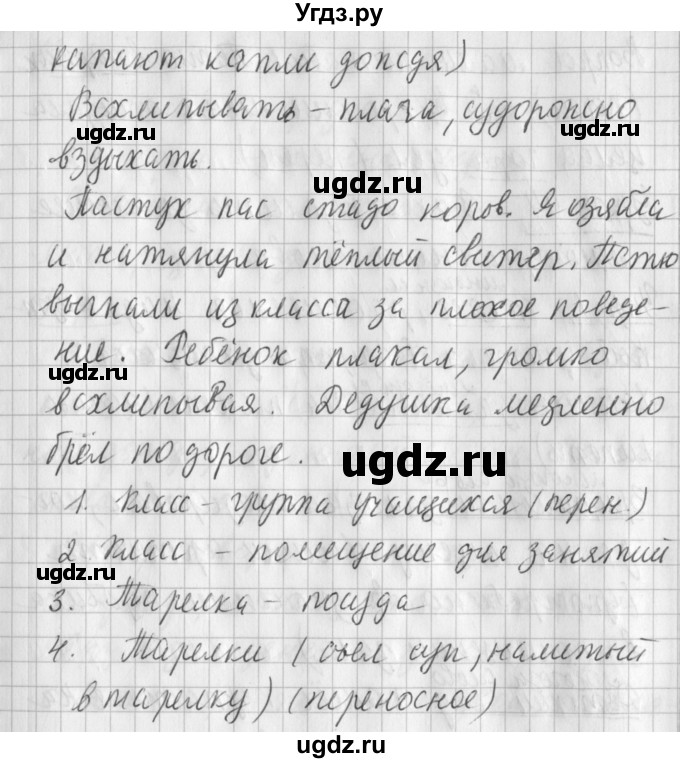 Угдз.ру
капают капли дождя)
Всхлипывать – плача, судорожно
ugdz.ru
ugdz.ru
вздыхать.
ugdz.ru
Пастух пас стадо коров. Я озябла
и натянула тёплый свитер. Петю
выгнали из класса за плохое поведе-
ние. Ребёнок плакал, громко
ugdz.ru
всхлипывая. Дедушка медленно
брёл по дороге.
ugdz.ru
1. Класс – группа учащихся (перен.)
2. Класс – помещение для занятий
ugdz.ru
3. Тарелка – посуда
4. Тарелки (съел суп, налитый
ugdz.ru
в тарелку) (переносное)
ugdz.ru